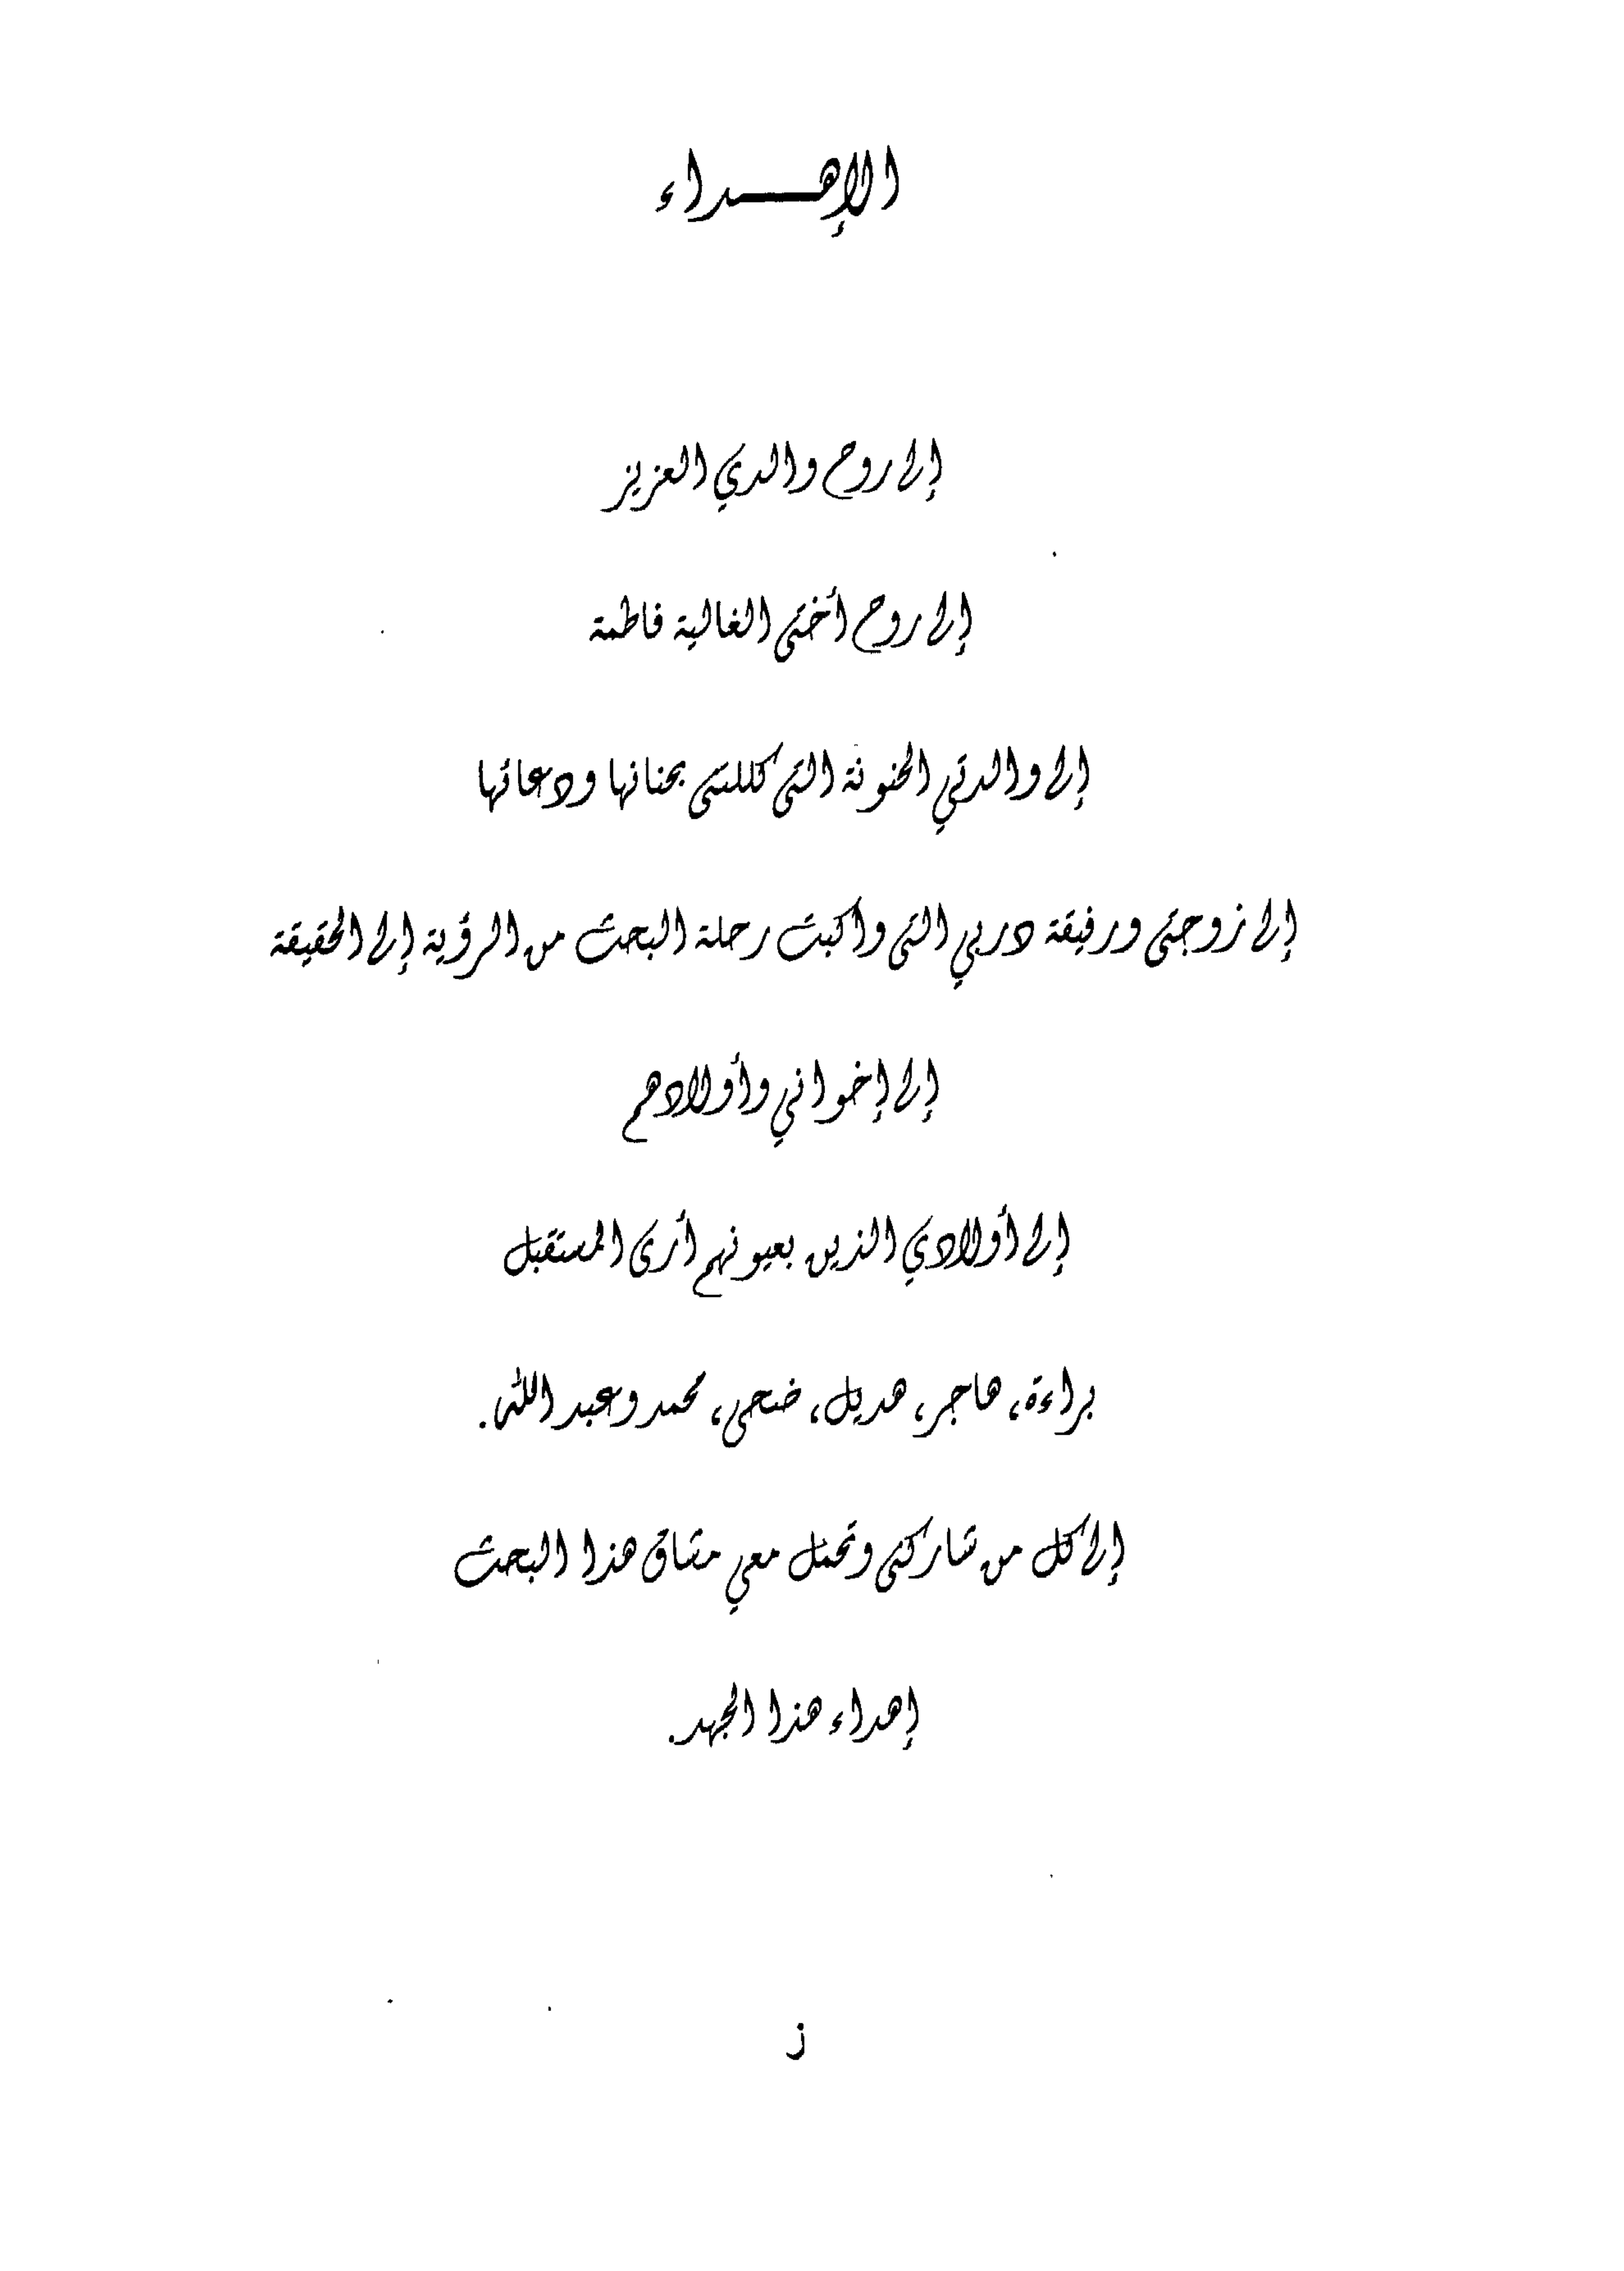 الإهـــداء
إلى روح والدي العزيز
إلى روح أختي الغالية فاطمة
إلى والدتي الحنونة التي كللتني بحنانها ودعائها
إلى زوجتي ورفيقة دربي التي واكبت رحلة البحث من الرؤية إلى الحقيقة
إلى إخواني وأولادهم
إلى أولادي الذين بعيونهم أرى المستقبل
براءة، هاجر، هديل، ضحى، محمد وعبد الله.
إلى كل من شاركني وتحمل معي مشاق هذا البحث
إهداء هذا الجهد.
ز